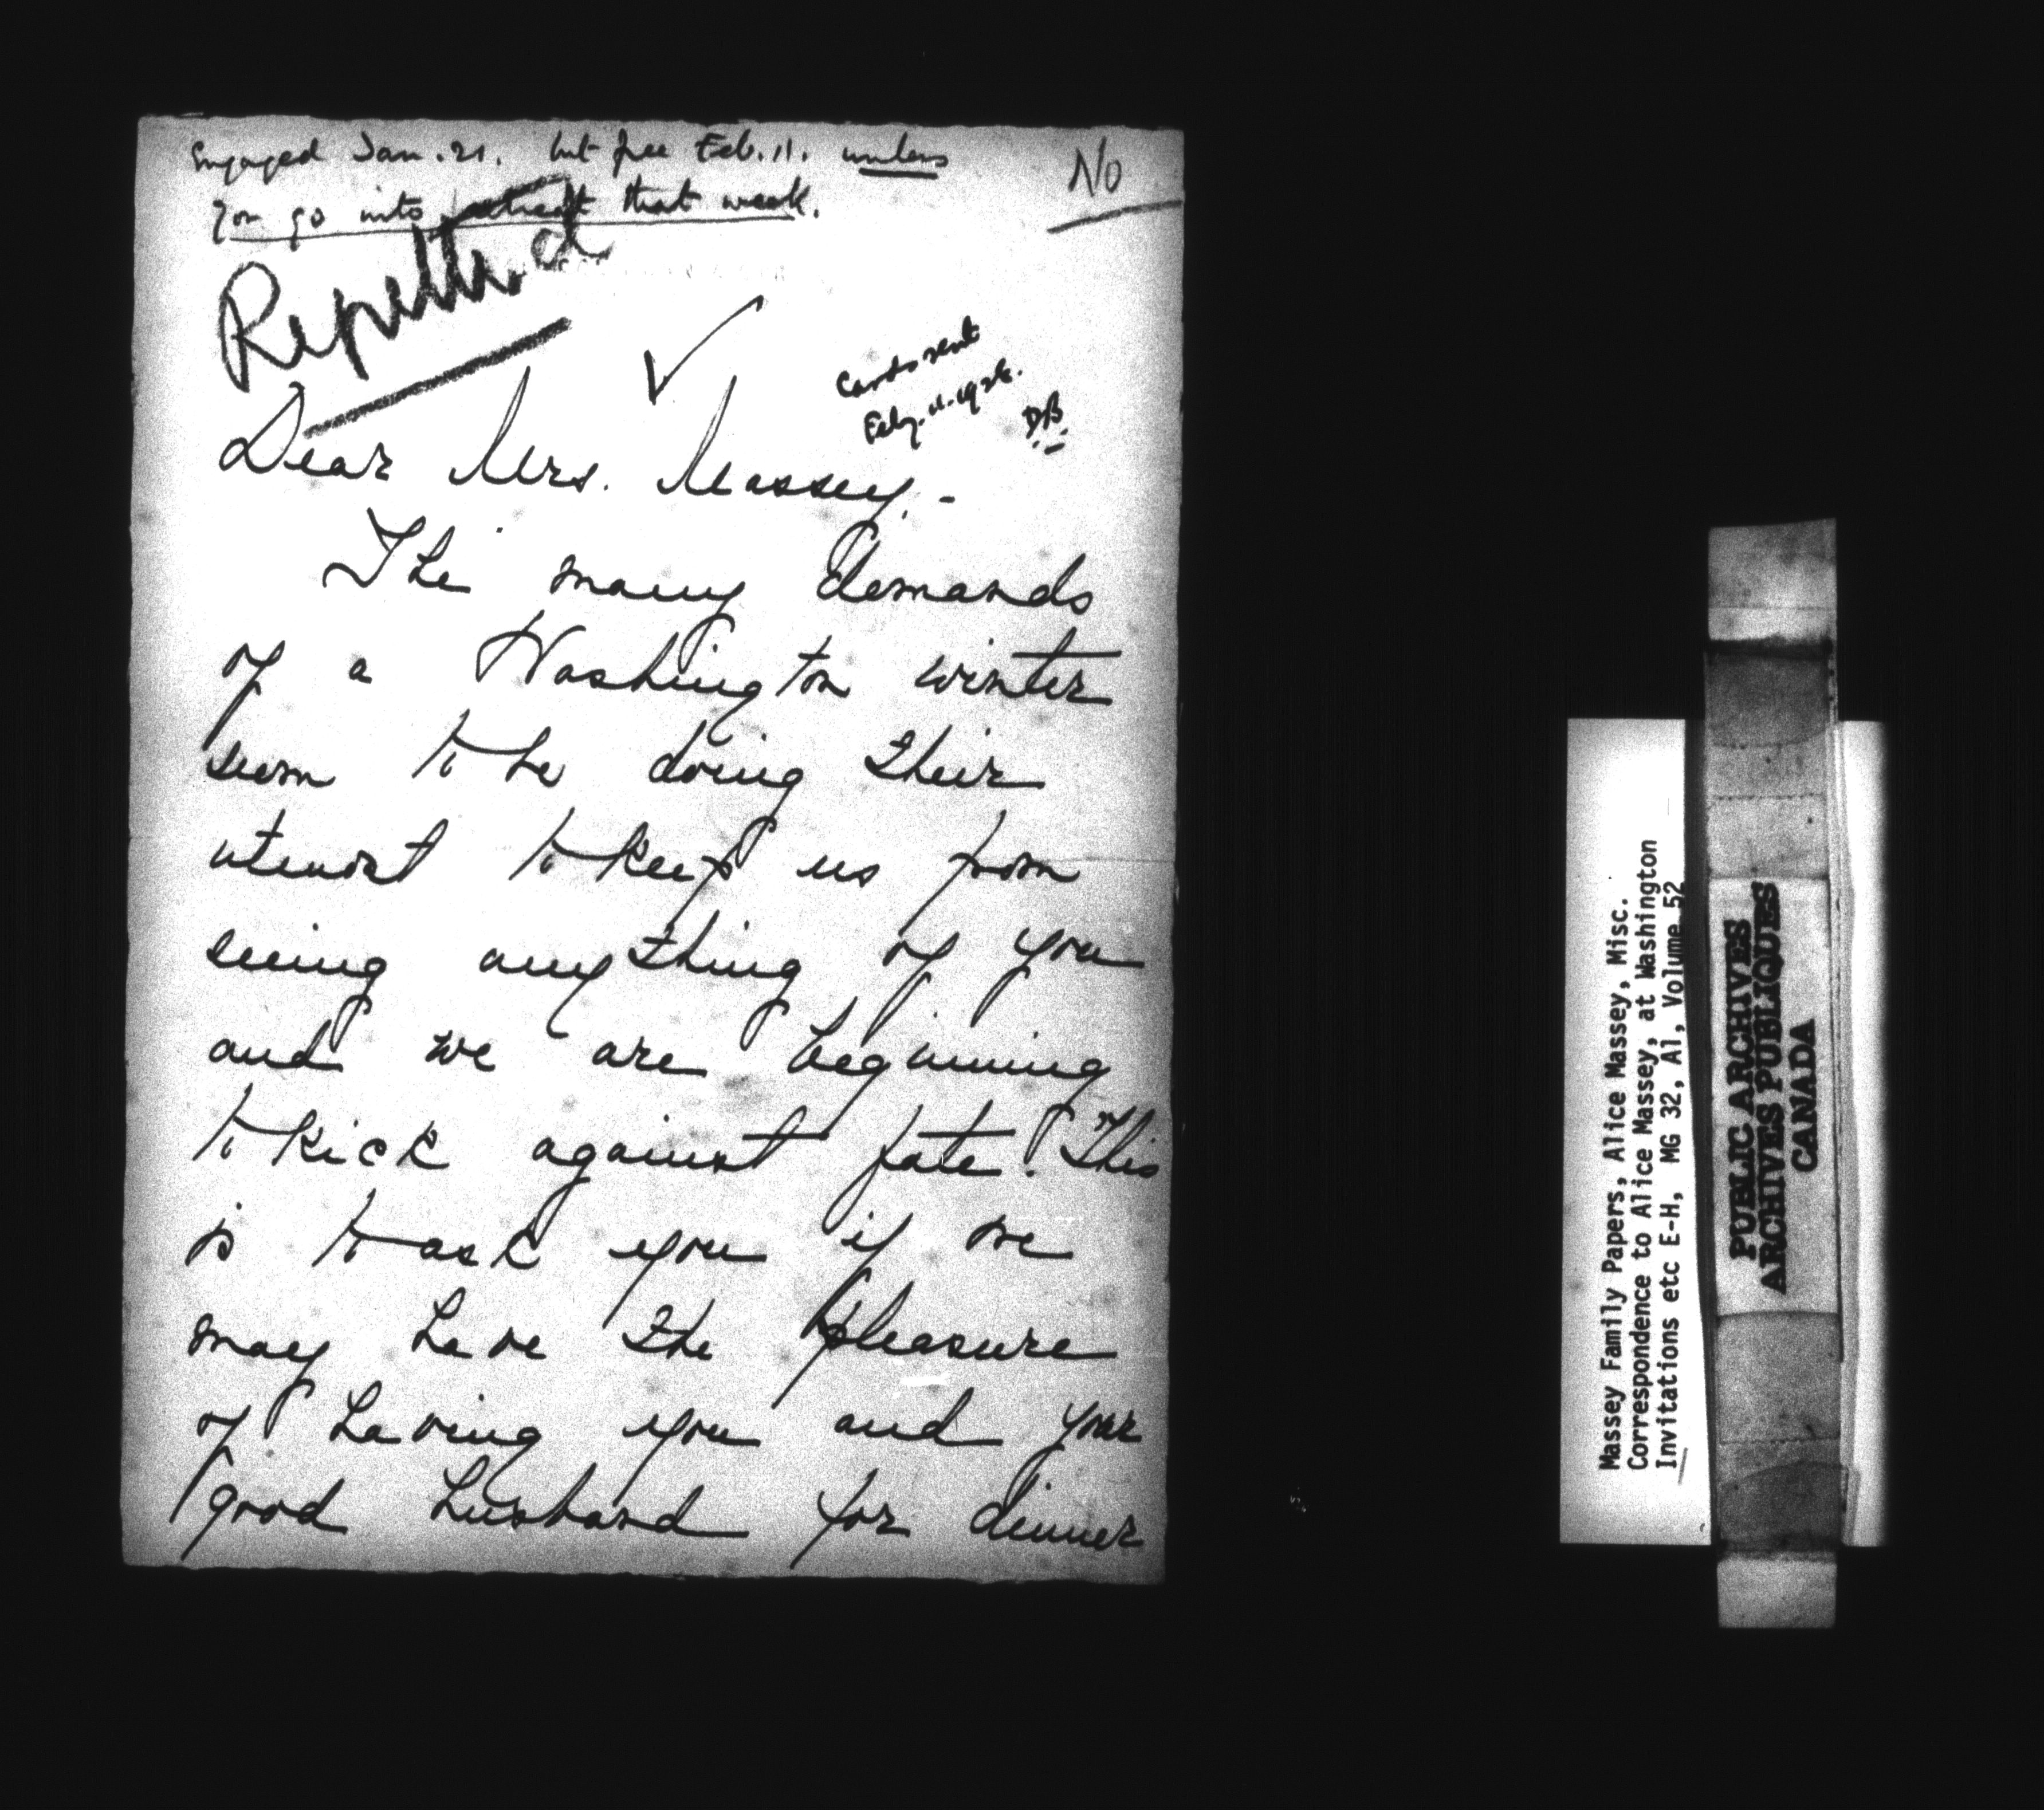 Engaged Jan. 21. but free Feb. 11. unless
you go into retreat that week.
No
Regretted
Cards sent
Feby. 11. 1928.
DB
Dear Mrs. Massey, -
The many demands
of a Washington winter
seem to be doing their
utmost to keep us from
seeing anything of you
and we are beginning
to kick against fate! This
is to ask you if we
may have the pleasure
of having you and your
good husband for dinner
Massey Family Papers, Alice Massey, Misc.
Correspondence to Alice Massey, at Washington
Invitations etc E-H, MG 32, A1, Volume 52
PUBLIC ARCHIVES
ARCHIVES PUBLIQUES
CANADA